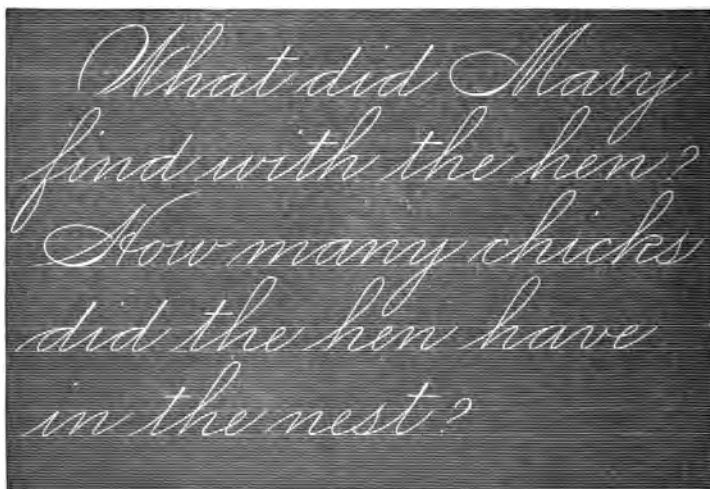 What did Mary
find with the hen?
How many chicks
did the hen have
in the nest?